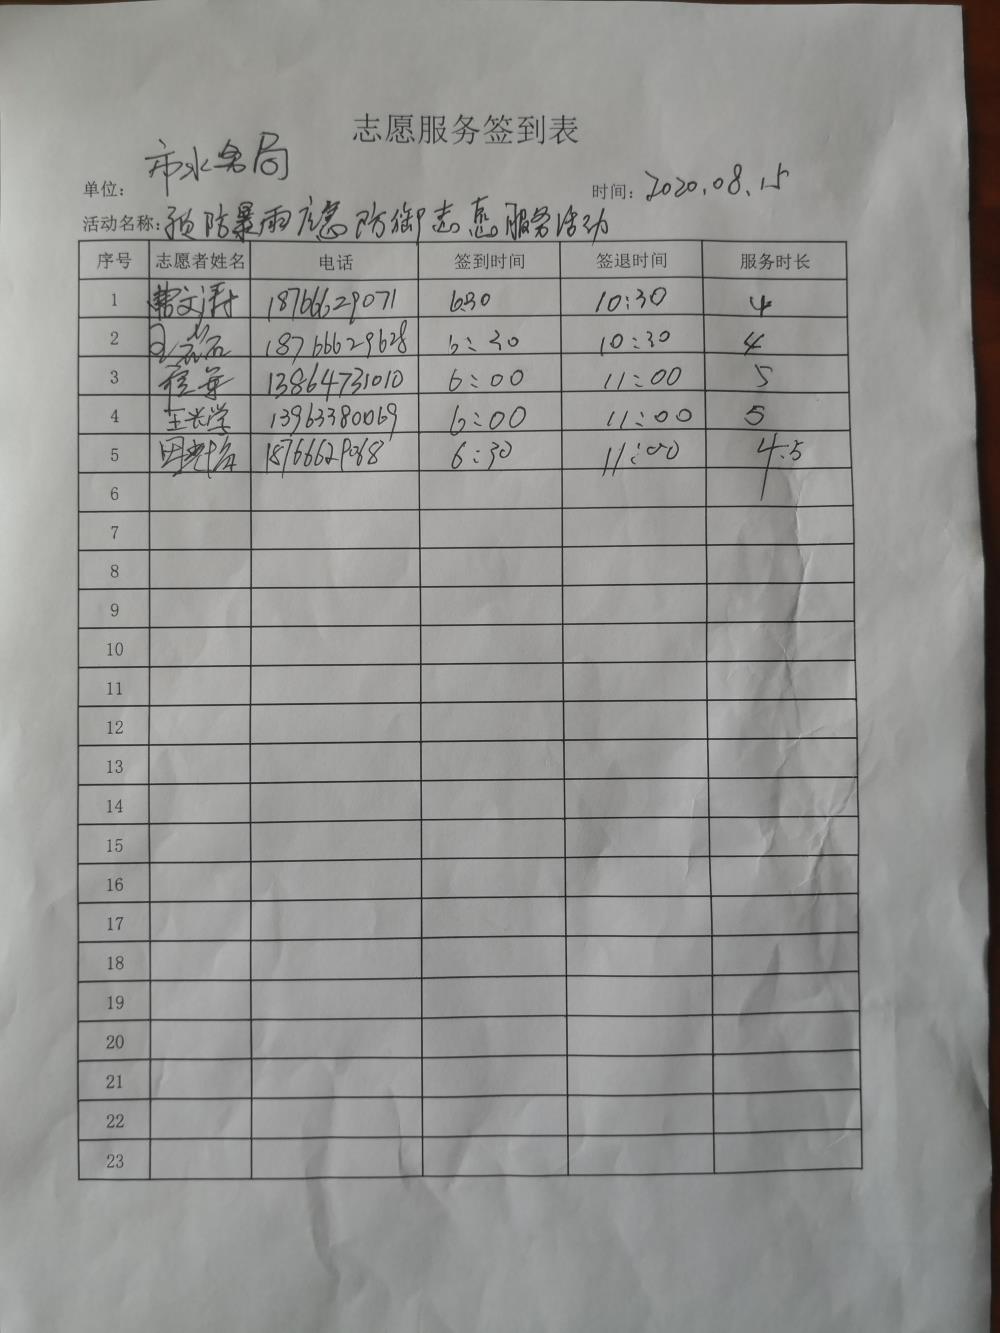 志愿服务签到表
单位: 市水务局 时间: 2020.08.15
活动名称: 预防暴雨应急防御志愿服务活动
序号 志愿者姓名 电话 签到时间 签退时间 服务时长
1 文涛 18766629071 630 10:30 4
2 18766629628 6:30 10:30 4
3 13864731010 6:00 11:00 5
4 王兴学 13963380069 6:00 11:00 5
5 18766629068 6:30 11:00 4.5
6
7
8
9
10
11
12
13
14
15
16
17
18
19
20
21
22
23